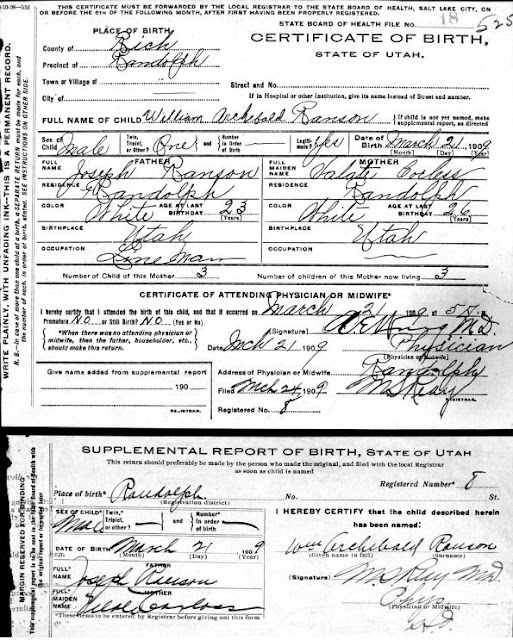 THIS CERTIFICATE MUST BE FORWARDED BY THE LOCAL REGISTRAR TO THE STATE BOARD OF HEALTH, SALT LAKE CITY, ON
OR BEFORE THE 5TH OF THE FOLLOWING MONTH, AFTER FIRST HAVING BEEN PROPERLY REGISTERED.
STATE BOARD OF HEALTH FILE NO. 18 525
PLACE OF BIRTH
CERTIFICATE OF BIRTH,
STATE OF UTAH.
County of Rich
Precinct of Randolph
Town or Village of
Street and No.
City of
If in Hospital or other Institution, give its name instead of Street and number.
FULL NAME OF CHILD William Archibald Ranson
If child is not yet named, make supplemental report, as directed
Sex of Child Male
Twin, Triplet, or Other? One and Number in Order of Birth
Legitimate? Yes
Date of Birth March 21, 1909
(Month) (Day) (Year)
FATHER
FULL NAME Joseph Ranson
RESIDENCE Randolph
COLOR White AGE AT LAST BIRTHDAY 23 (Years)
BIRTHPLACE Utah
OCCUPATION Line Man
MOTHER
FULL MAIDEN NAME
RESIDENCE Randolph
COLOR White AGE AT LAST BIRTHDAY 26 (Years)
BIRTHPLACE Utah
OCCUPATION
Number of Child of this Mother 3
Number of children of this Mother now living 3
CERTIFICATE OF ATTENDING PHYSICIAN OR MIDWIFE*
I hereby certify that I attended the birth of this child, and that it occurred on March 21 1909, at 5
Premature NO or Still Birth? NO (Yes or No)
*When there was no attending physician or midwife, then the father, householder, etc., should make this return.
(Signature) M.D.
Date Mch 21 1909
Physician
(Physician or Midwife)
Give name added from supplemental report
190
REGISTRAR.
Address of Physician or Midwife Randolph
Filed Mch 24, 1909
REGISTRAR.
Registered No. 8
WRITE PLAINLY, WITH UNFADING INK—THIS IS A PERMANENT RECORD.
N. B.—In case of more than one child at a birth, a SEPARATE RETURN must be made for each, and
the number of each, in order of birth, stated. SEE INSTRUCTIONS ON OTHER SIDE.
SUPPLEMENTAL REPORT OF BIRTH, STATE OF UTAH
This return should preferably be made by the person who made the original, and filed with the local Registrar
as soon as child is named
Registered Number* 8
Place of birth* Randolph
(Registration district)
No. St.
SEX OF CHILD* Male
Twin, Triplet, or other? and Number in order of birth
I HEREBY CERTIFY that the child described herein
has been named:
DATE OF BIRTH* March 21 1909
(Month) (Day) (Year)
Wm Archibald Ranson
(Given name in full) (Surname)
FATHER
FULL* NAME Joseph Ranson
MOTHER
FULL* MAIDEN NAME
(Signature)
(Physician or Midwife)
*These items to be entered by Registrar before giving out this form
MARGIN RESERVED FOR BINDING